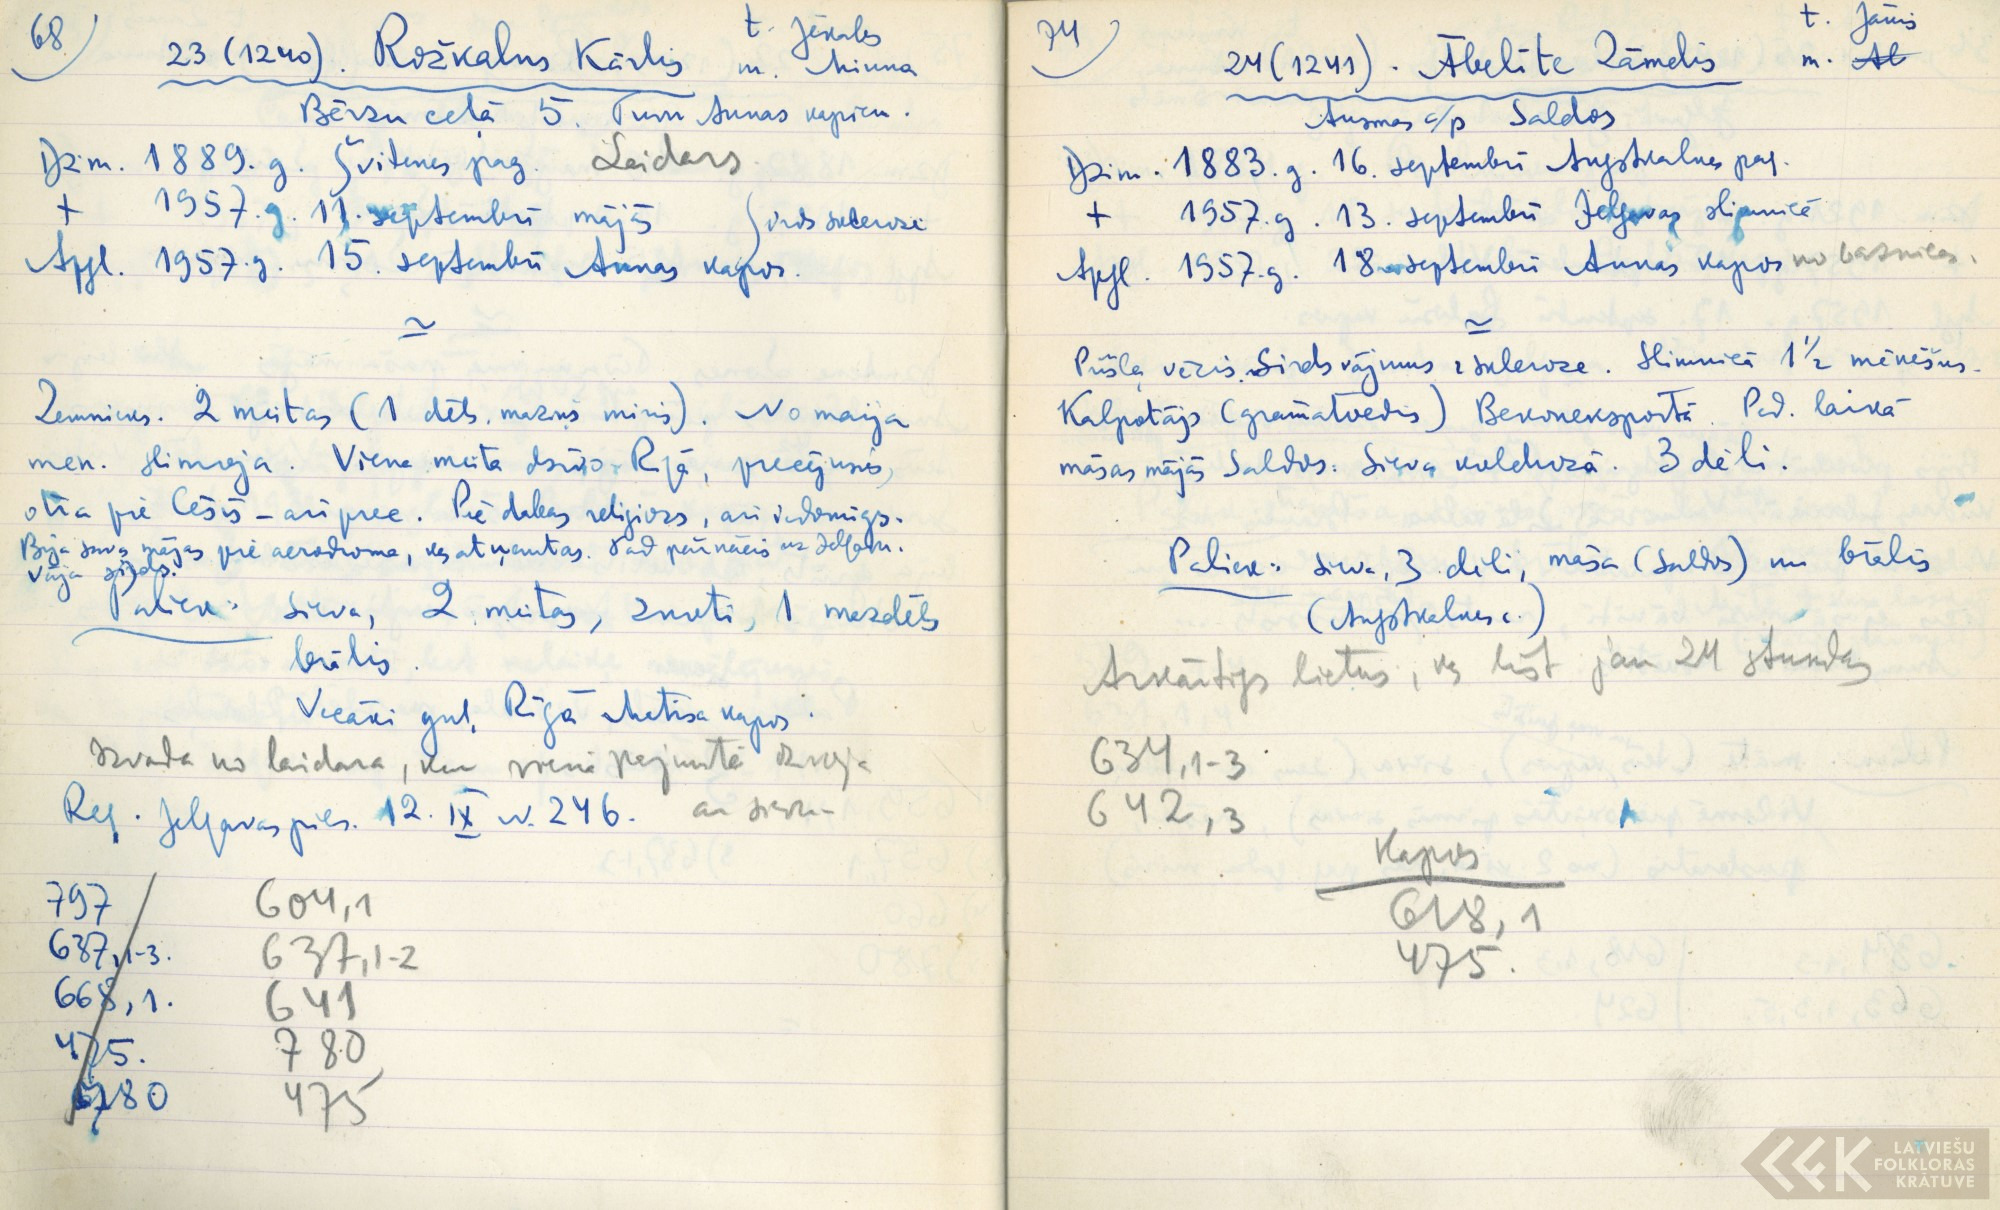 68
t. Jēkabs
23 (1240). Rožkalns Kārlis m. Minna
Bērzu ceļā 5. Turu Annas kapiem.
Dzim. 1889. g. Svitenes pag. Laidars.
+ 1957. g. 11. septembrī mājās Sirds skleroze
Apgl. 1957. g. 15. septembrī Annas kapos.
≃
Zemnieks. 2 meitas (1 dēls, maziņš miris). No maija
mēn. slimoja. Viena meita dzīvo Rīgā, precējusies,
otra pie Cēsīs – arī prec. Pie dabas reliģiozs, arī
Bija savas mājas pie aerodroma, kas atņemtas. Tad pārnācis uz Jelgavu.
Vāja sirds.
Paliek: sieva, 2 meitas, znoti, 1 mazdēls
brālis.
Vecāki guļ Rīgā Matīsa kapos.
Izvada no laidara, kur vienā pajumtē dzīvoja
Reģ. Jelgavas pils. 12. IX nr. 246. ar sievu
797 604,1
637,1-3. 637,1-2
668,1. 641
475. 780
780 475
74
t. Jānis
24 (1241). Ābelīte Zāmelis m. Al
Ausmas c/p Saldos
Dzim. 1883. g. 16. septembrī Augstkalnes pag.
+ 1957. g. 13. septembrī Jelgavas slimnīcā
Apgl. 1957. g. 18. septembrī Annas kapos no baznīcas.
≃
Pūšļa vēzis. Sirds vājums, skleroze. Slimnīcā 1½ mēnešus.
Kalpotājs (grāmatvedis) Bekoneksportā. Pēd. laikā
māsas mājās Saldos. Sieva kolchozā. 3 dēli.
Paliek: sieva, 3 dēli, māsa (Saldos) un brālis
(Augstkalnes c.)
Ārkārtīgs lietus, kas līst jau 24 stundas
634,1-3.
642,3
Kapos
618,1
475.
LATVIEŠU
FOLKLORAS
KRĀTUVE